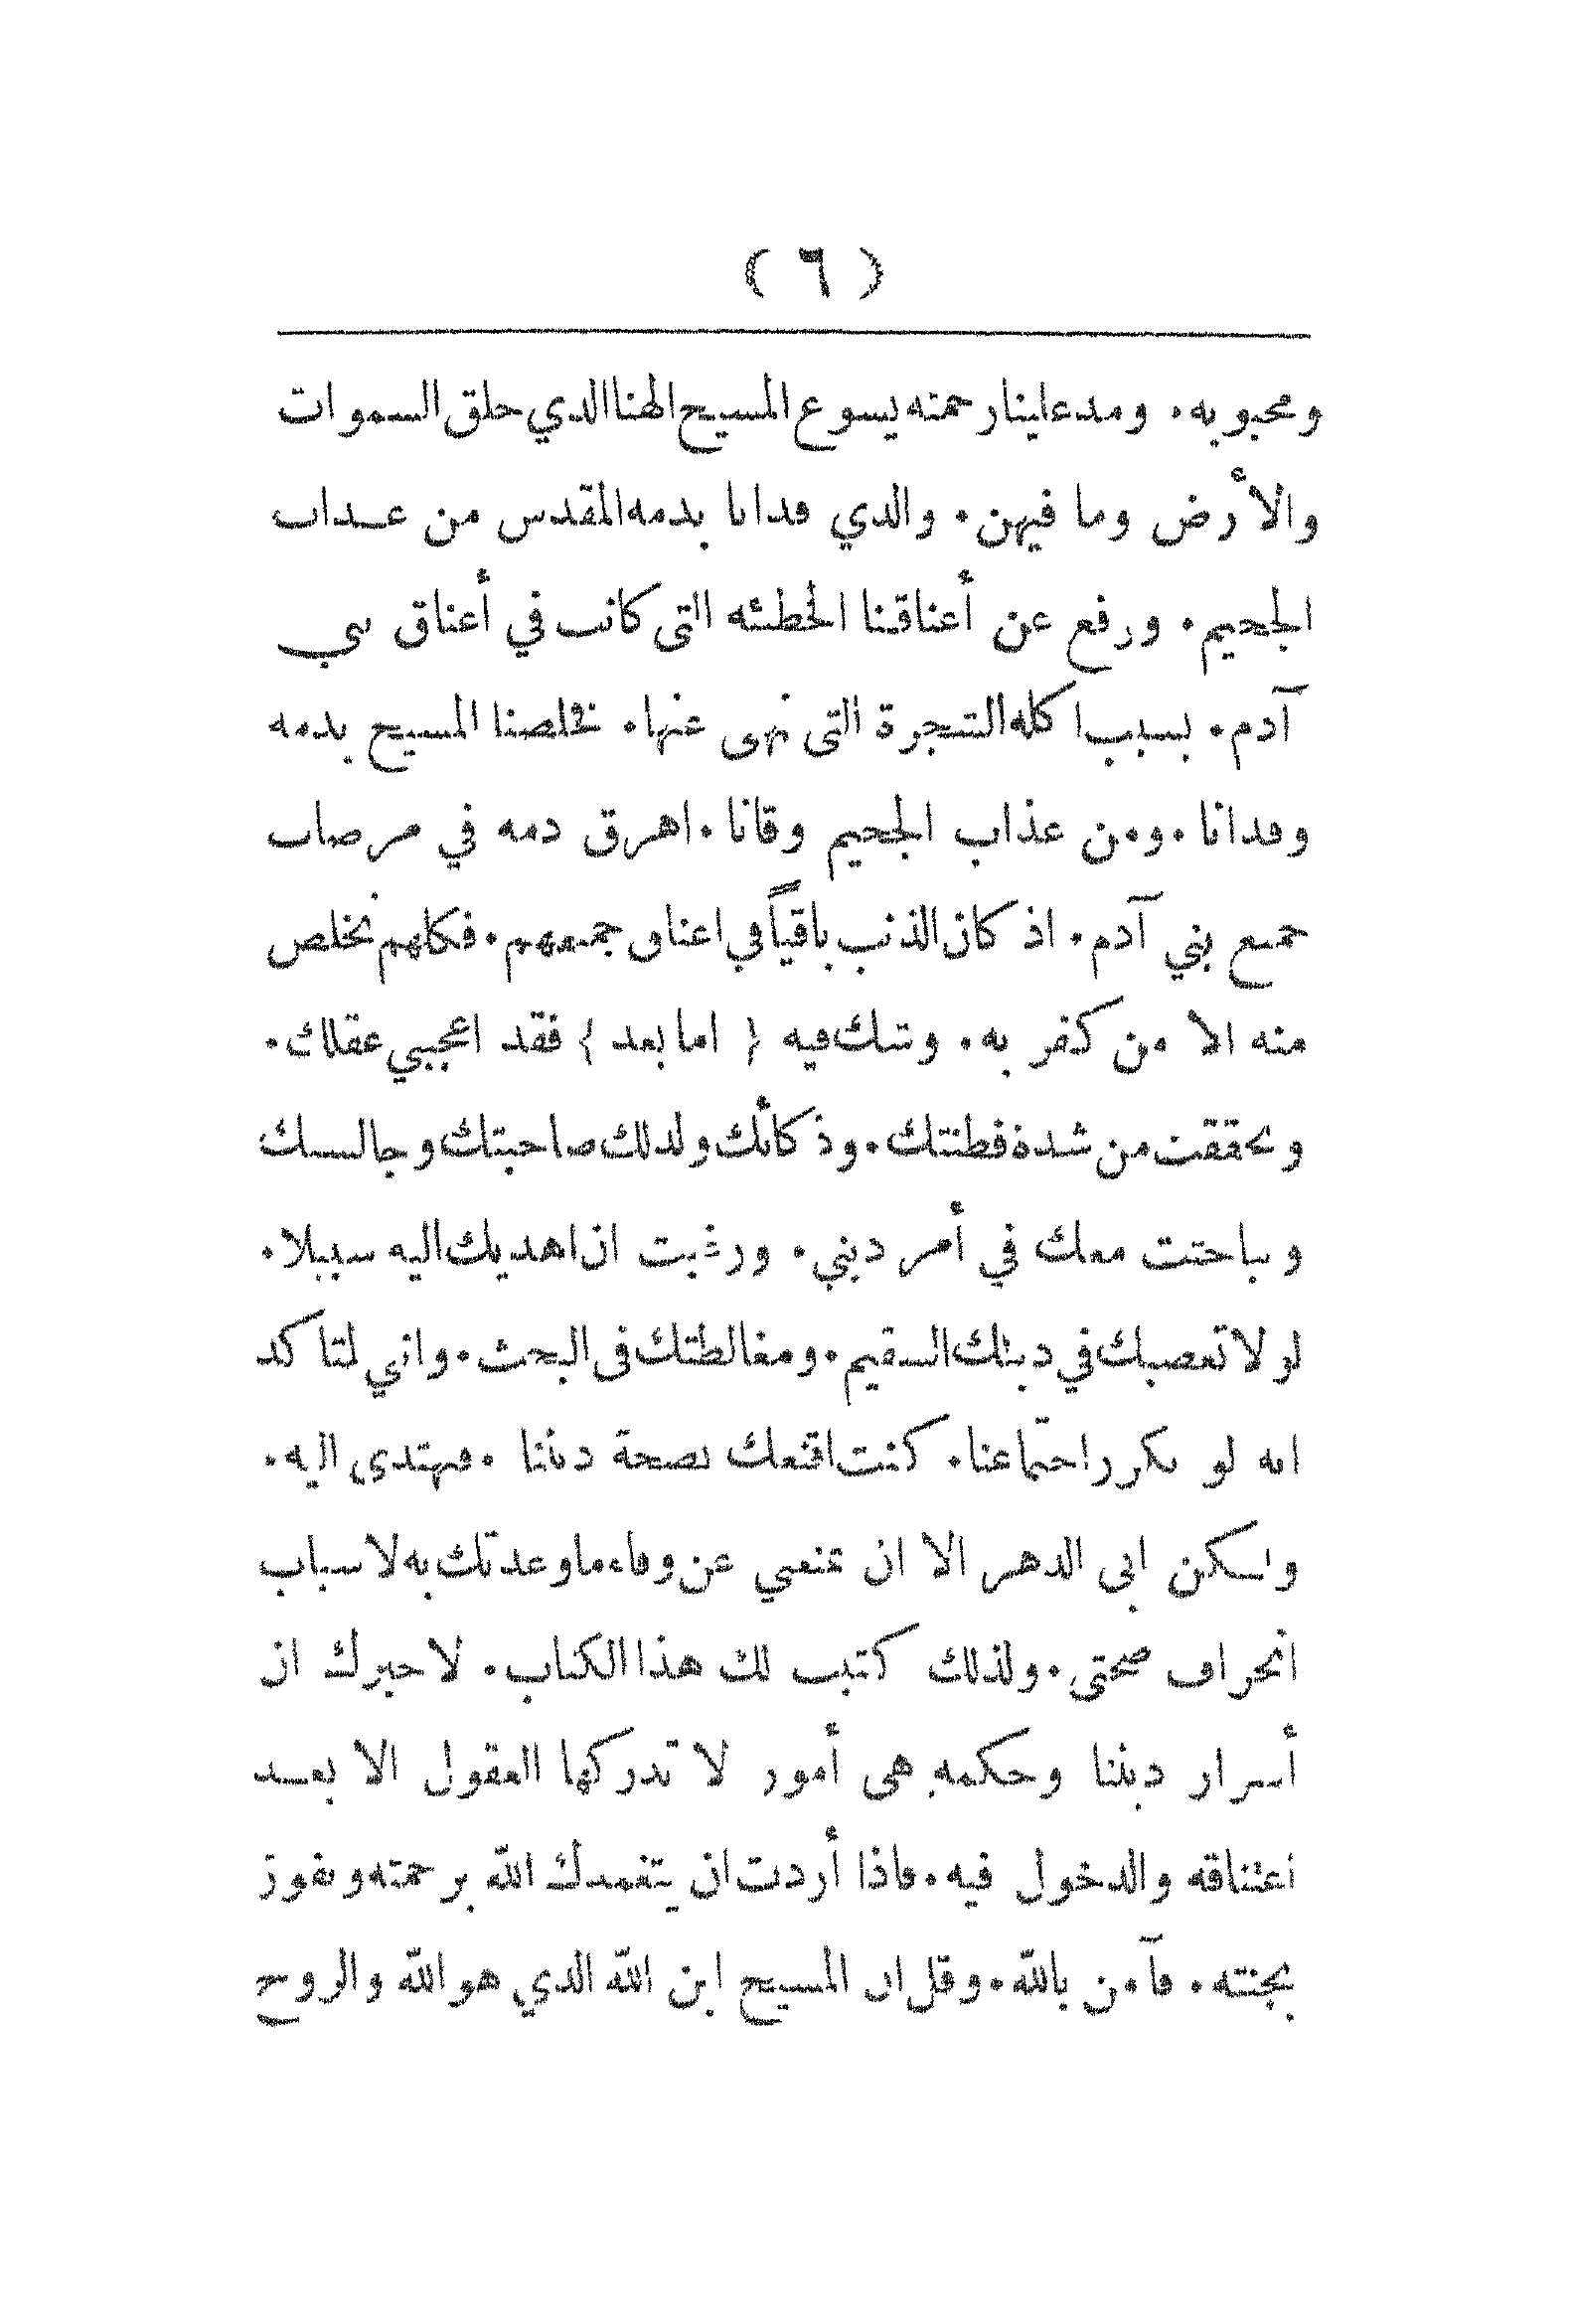 ( ٦ )
ومحبوبه . ومد علينا رحمته يسوع المسيح الهنا الذي خلق السموات
والأرض وما فيهن . والذي فدانا بدمه المقدس من عذاب
الجحيم . ورفع عن أعناقنا الخطئه التى كانت في أعناق بني
آدم . بسبب اكله الشجرة التى نهى عنها . فخلصنا المسيح بدمه
وفدانا . ومن عذاب الجحيم وقانا . اهرق دمه في مرضات
جميع بني آدم . اذ كان الذنب باقياً في اعناق جميعهم . فكلهم تخلص
منه الا من كفر به . وشك فيه { اما بعد } فقد اعجبني عقلك .
وتحققت من شدة فطنتك . وذكائك ولذلك صاحبتك وجالستك
وباحثت معك في أمر ديني . ورغبت ان اهديك اليه سبيلا .
لولا تعصبك في دينك السقيم . ومغالطتك فى البحث . واني لمتاكد
انه لو تكرر اجتماعنا . كنت اقنعك بصحة ديننا . فتهتدى اليه .
ولكن ابى الدهر الا ان تمنعني عن وفاء ما وعدتك به لاسباب
انحراف صحتى . ولذلك كتبت لك هذا الكتاب . لاخبرك ان
أسرار ديننا وحكمه هى أمور لا تدركها العقول الا بعد
اعتناقه والدخول فيه . فاذا أردت ان يتغمدك الله برحمته وتفوز
بجنته . فآمن بالله . وقل ان المسيح ابن الله الذي هو الله والروح